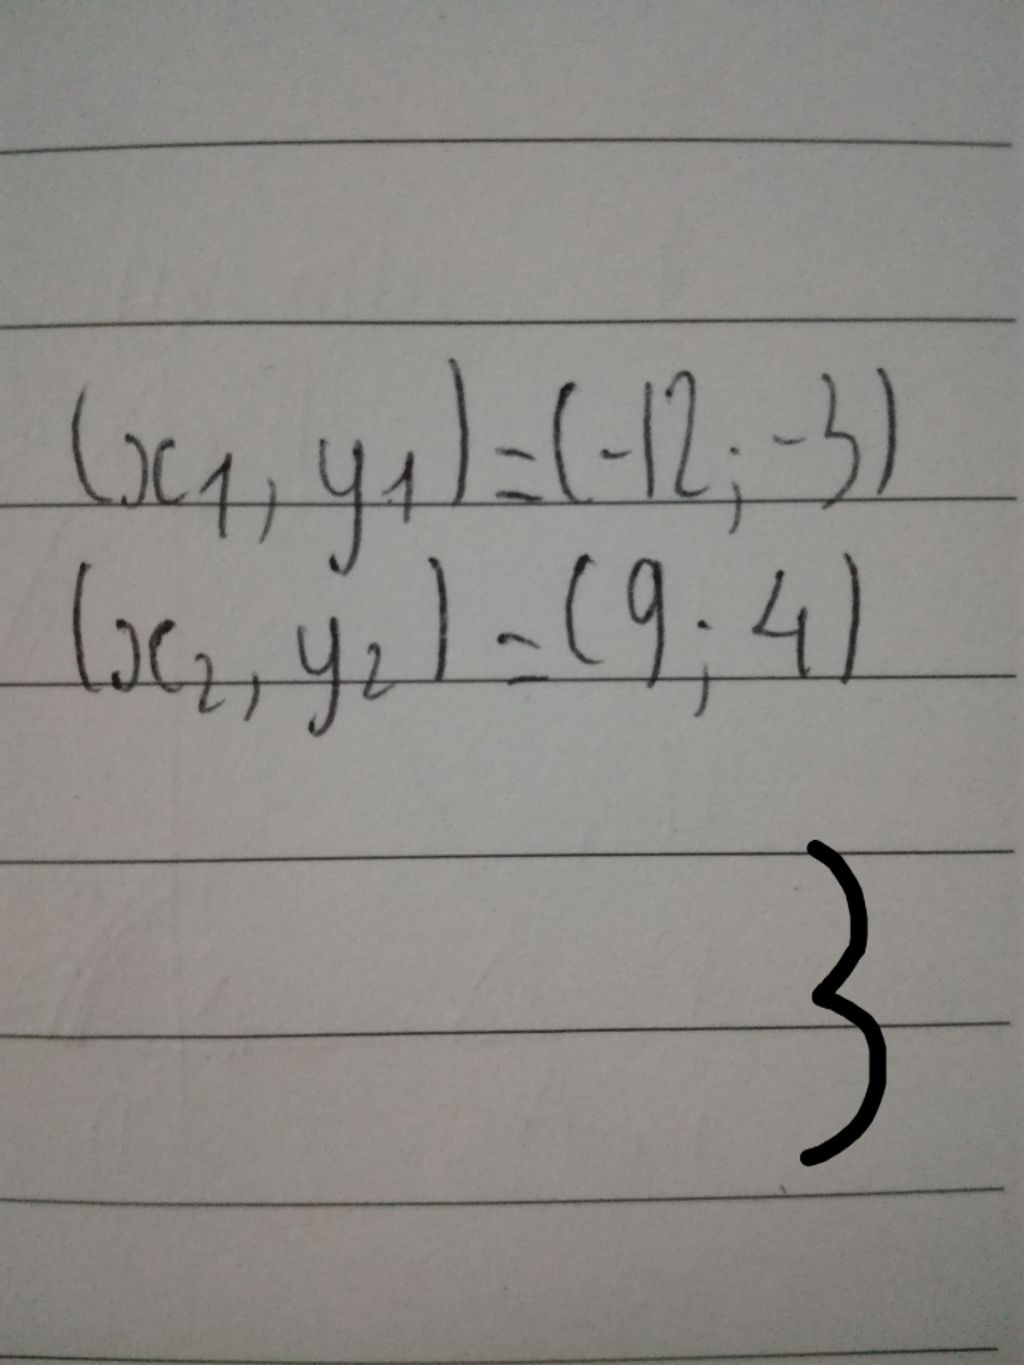 (x₁, y₁) = (-12; -3)
(x₂, y₂) = (9; 4)
}